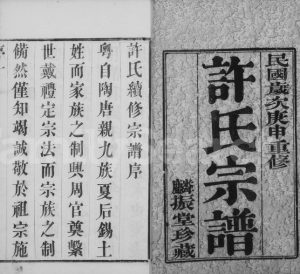 民國歲次庚申重修
許氏宗譜
麟振堂珍藏
許氏續修宗譜序
粵自陶唐親九族夏后錫土
姓而家族之制興周官奠繫
世戴禮定宗法而宗族之制
備然僅知竭誠敬於祖宗施